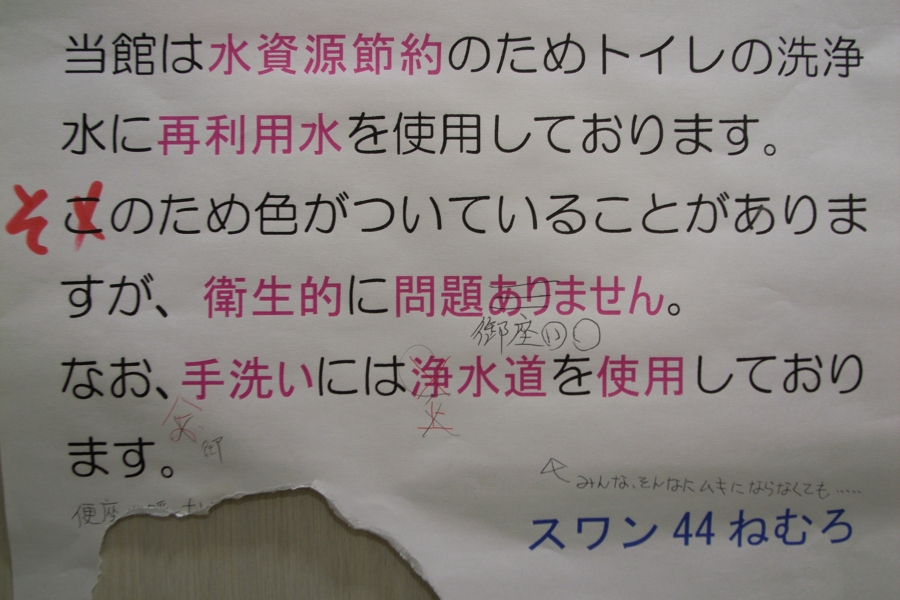 当館は水資源節約のためトイレの洗浄
水に再利用水を使用しております。
そ
このため色がついていることがありま
すが、衛生的に問題ありません。
御座
なお、手洗いには浄水道を使用しており
ます。
みんな、そんなにムキにならなくても……
便座
スワン44ねむろ